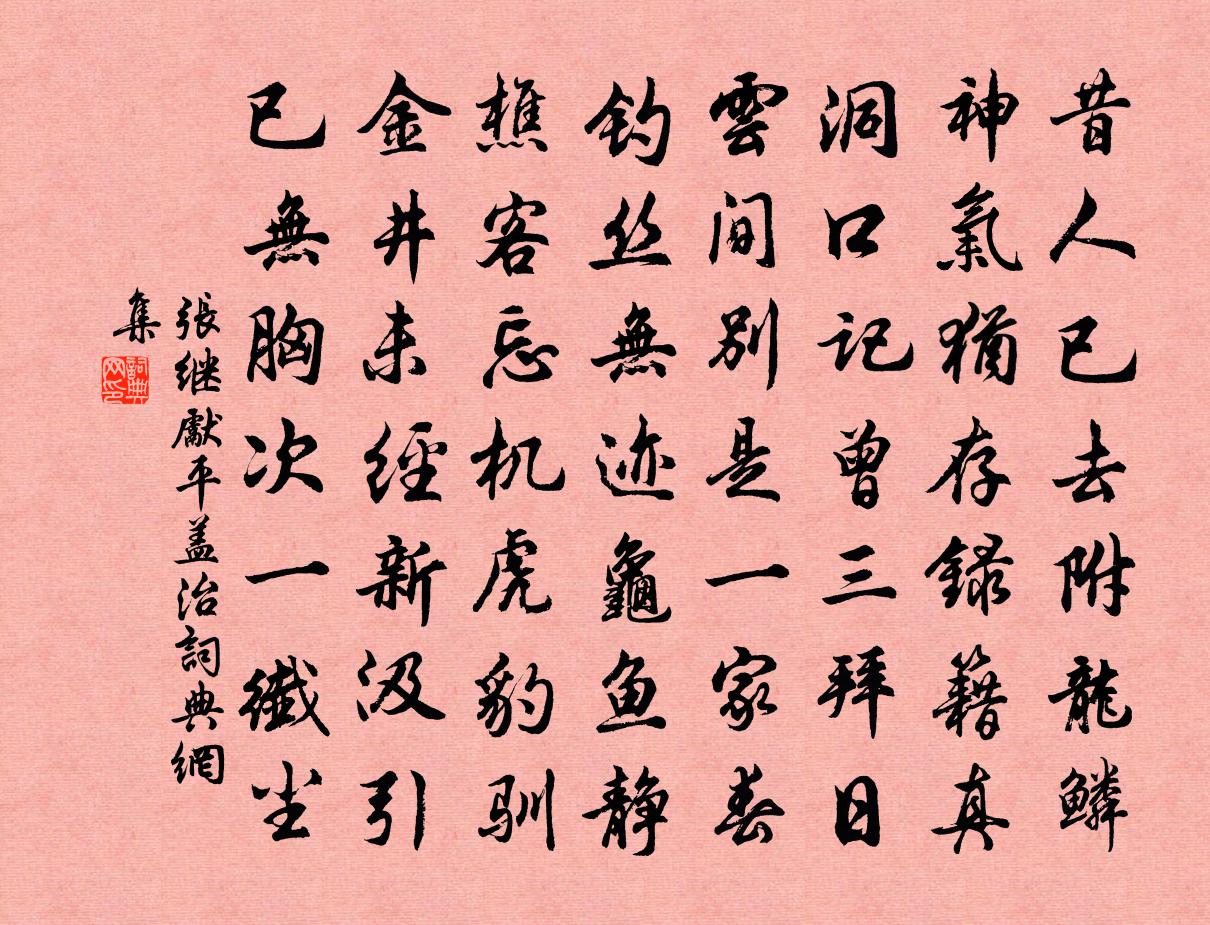 昔人已去附龍鱗
神氣猶存錄籍真
洞口記曾三拜日
雲間别是一家春
釣丝無迹龜鱼静
樵客忘机虎豹馴
金井未經新汲引
已無胸次一纖尘
張继獻平盖治詞典網
集
詞典网印